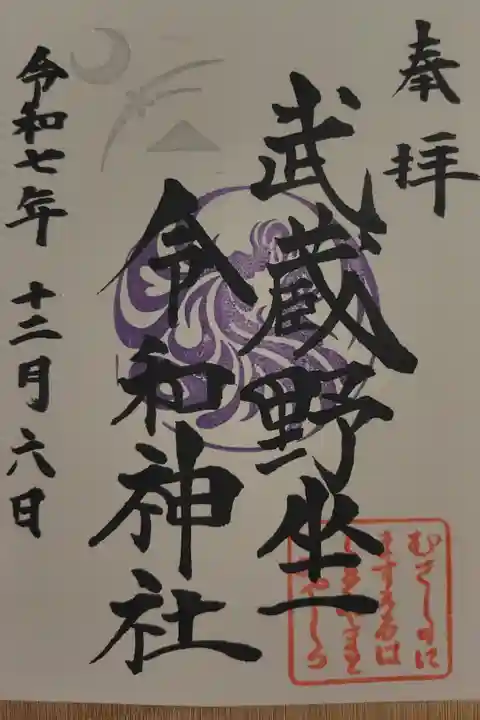 奉拝
武蔵野坐
令和神社
令和七年 十二月六日
むさしのに